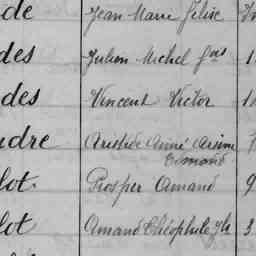 de Jean Marie Félix
des Julien Michel fois
des Vincent Victor 1
ndre Aristide Aimé Arsène
Edmond
lot Prosper Amand 9
lot Amand Théophile 3